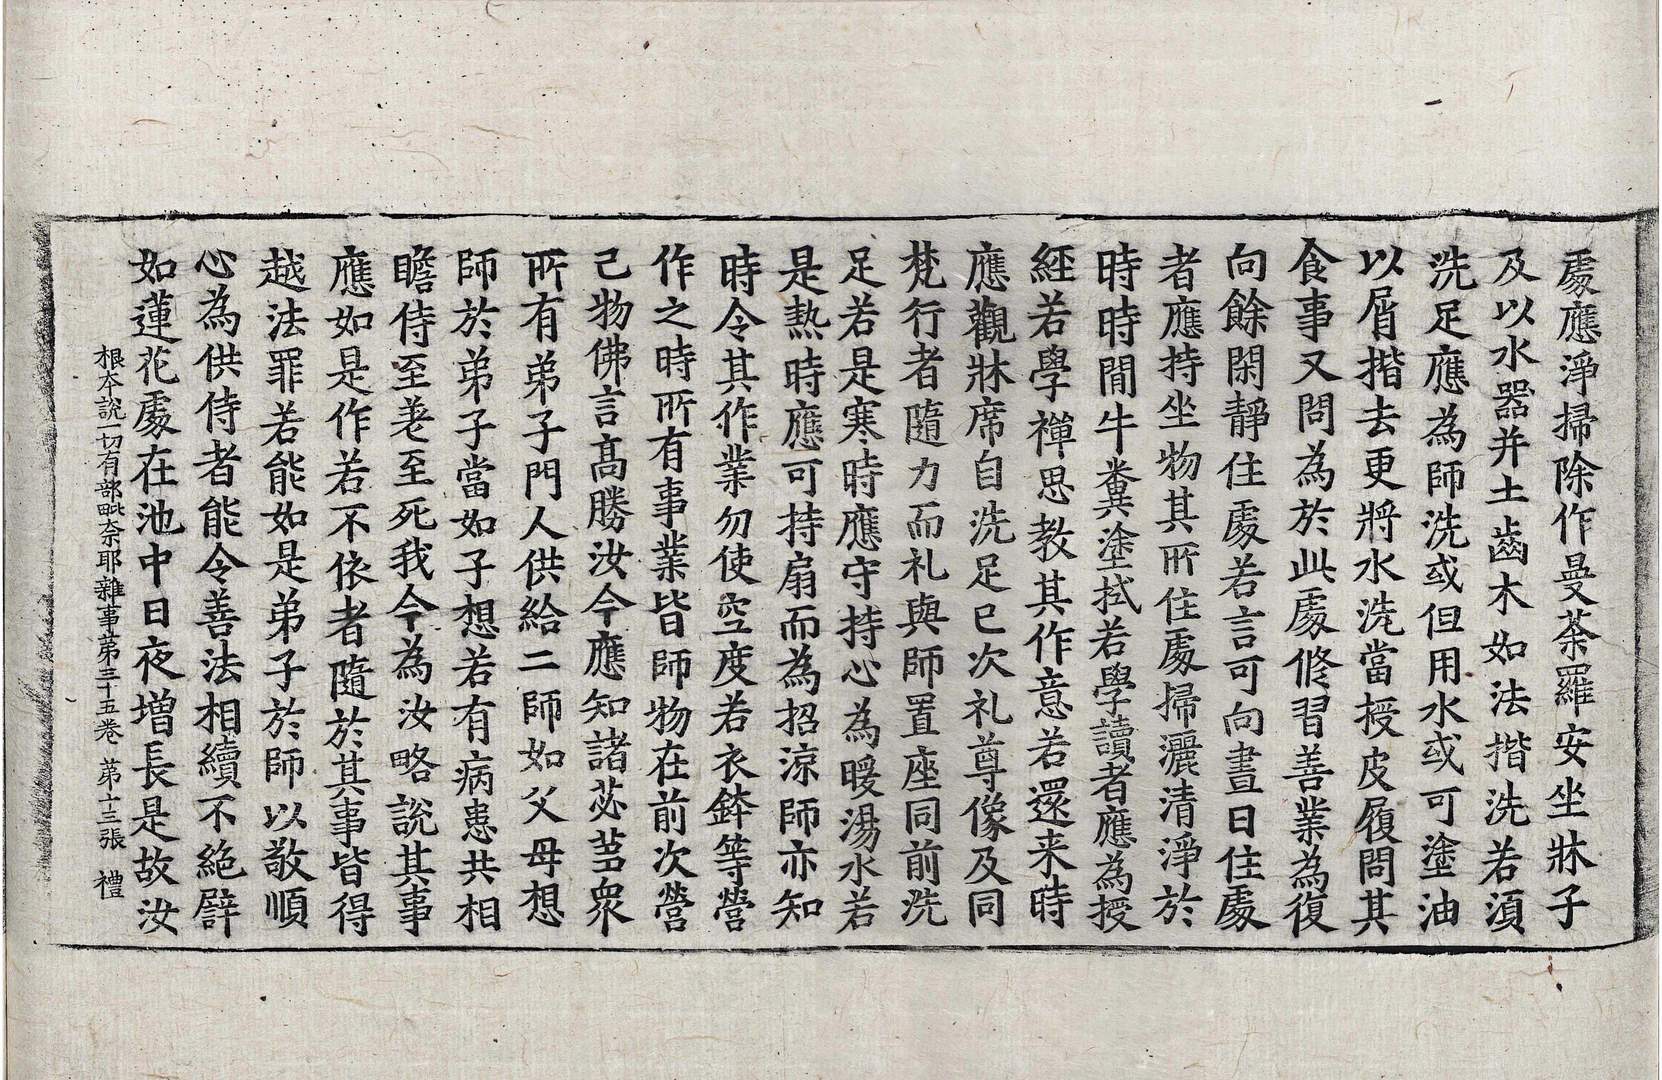 處應淨掃除作曼荼羅安坐牀子
及以水器并土齒木如法揩洗若湏
洗足應為師洗或但用水或可塗油
以屑揩去更將水洗當授皮履問其
食事又問為於此處修習善業為復
向餘閑靜住處若言可向晝日住處
者應持坐物其所住處掃灑清淨於
時時間牛糞塗拭若學讀者應為授
經若學禪思教其作意若還来時
應觀牀席自洗足已次礼尊像及同
梵行者隨力而礼與師置座同前洗
足若是寒時應守持心為暖湯水若
是熱時應可持扇而為招涼師亦知
時令其作業勿使空度若衣鉢等營
作之時所有事業皆師物在前次營
己物佛言高勝汝今應知諸苾芻衆
所有弟子門人供給二師如父母想
師於弟子當如子想若有病患共相
瞻侍至老至死我今為汝略說其事
應如是作若不依者隨於其事皆得
越法罪若能如是弟子於師以敬順
心為供侍者能令善法相續不絶譬
如蓮花處在池中日夜增長是故汝
根本說一切有部毗奈耶雜事第三十五卷 第十三張 禮